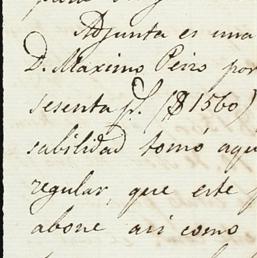 para
Adjunta es una
D. Maximo Peiro por
sesenta p.s ($1560)
sabilidad tomó aqu
regular, que este p
abone asi como